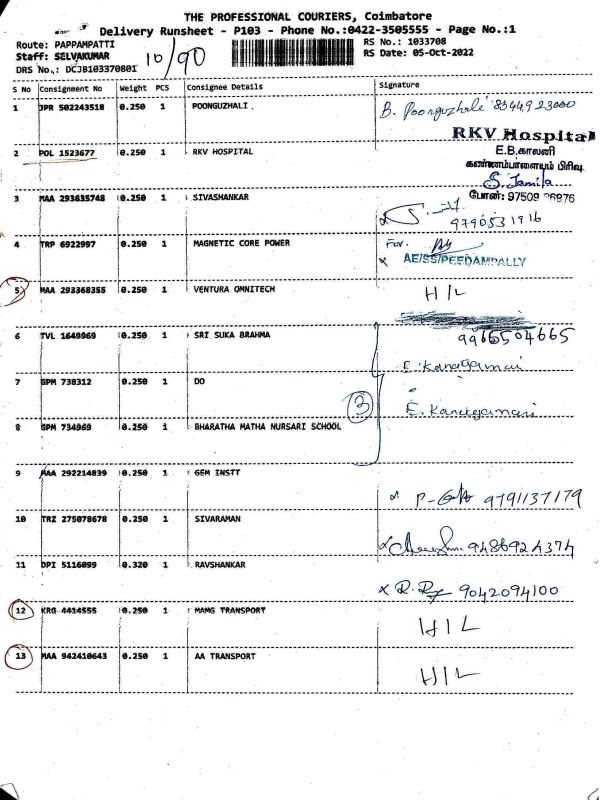 THE PROFESSIONAL COURIERS, Coimbatore
Delivery Runsheet - P103 - Phone No.:0422-3505555 - Page No.:1
Route: PAPPAMPATTI
Staff: SELVAKUMAR
DRS No.: DCJB103370801
10/90
RS No.: 1033708
RS Date: 05-Oct-2022
S No Consignment No Weight PCS Consignee Details Signature
1 JPR 502243518 0.250 1 POONGUZHALI. B. Poonguzhali 8344923000
2 POL 1523677 0.250 1 RKV HOSPITAL RKV Hospital
E.B.காலனி
கண்ணம்பாளையம் பிரிவு
S. Jamila
போன்: 97509
3 MAA 293635748 0.250 1 SIVASHANKAR
9790531916
4 TRP 6922997 0.250 1 MAGNETIC CORE POWER For.
AE/SS/PEEDAMPALLY
5 MAA 293368355 1 0.250 VENTURA OMNITECH H/L
6 TVL 1649969 0.250 1 SRI SUKA BRAHMA 9965504665
E. Kanagamani
7 GPM 738312 0.250 1 DO E. Kanagamani
3
8 GPM 734969 0.250 1 BHARATHA MATHA NURSARI SCHOOL
9 MAA 292214839 0.250 1 GEM INSTT
9791137179
10 TRZ 275078678 0.250 1 SIVARAMAN
9486924374
11 DPI 5116099 0.320 1 RAVSHANKAR
9042094100
12 KRG 4414555 0.250 1 MAMG TRANSPORT H/L
13 MAA 942410643 0.250 1 AA TRANSPORT H/L